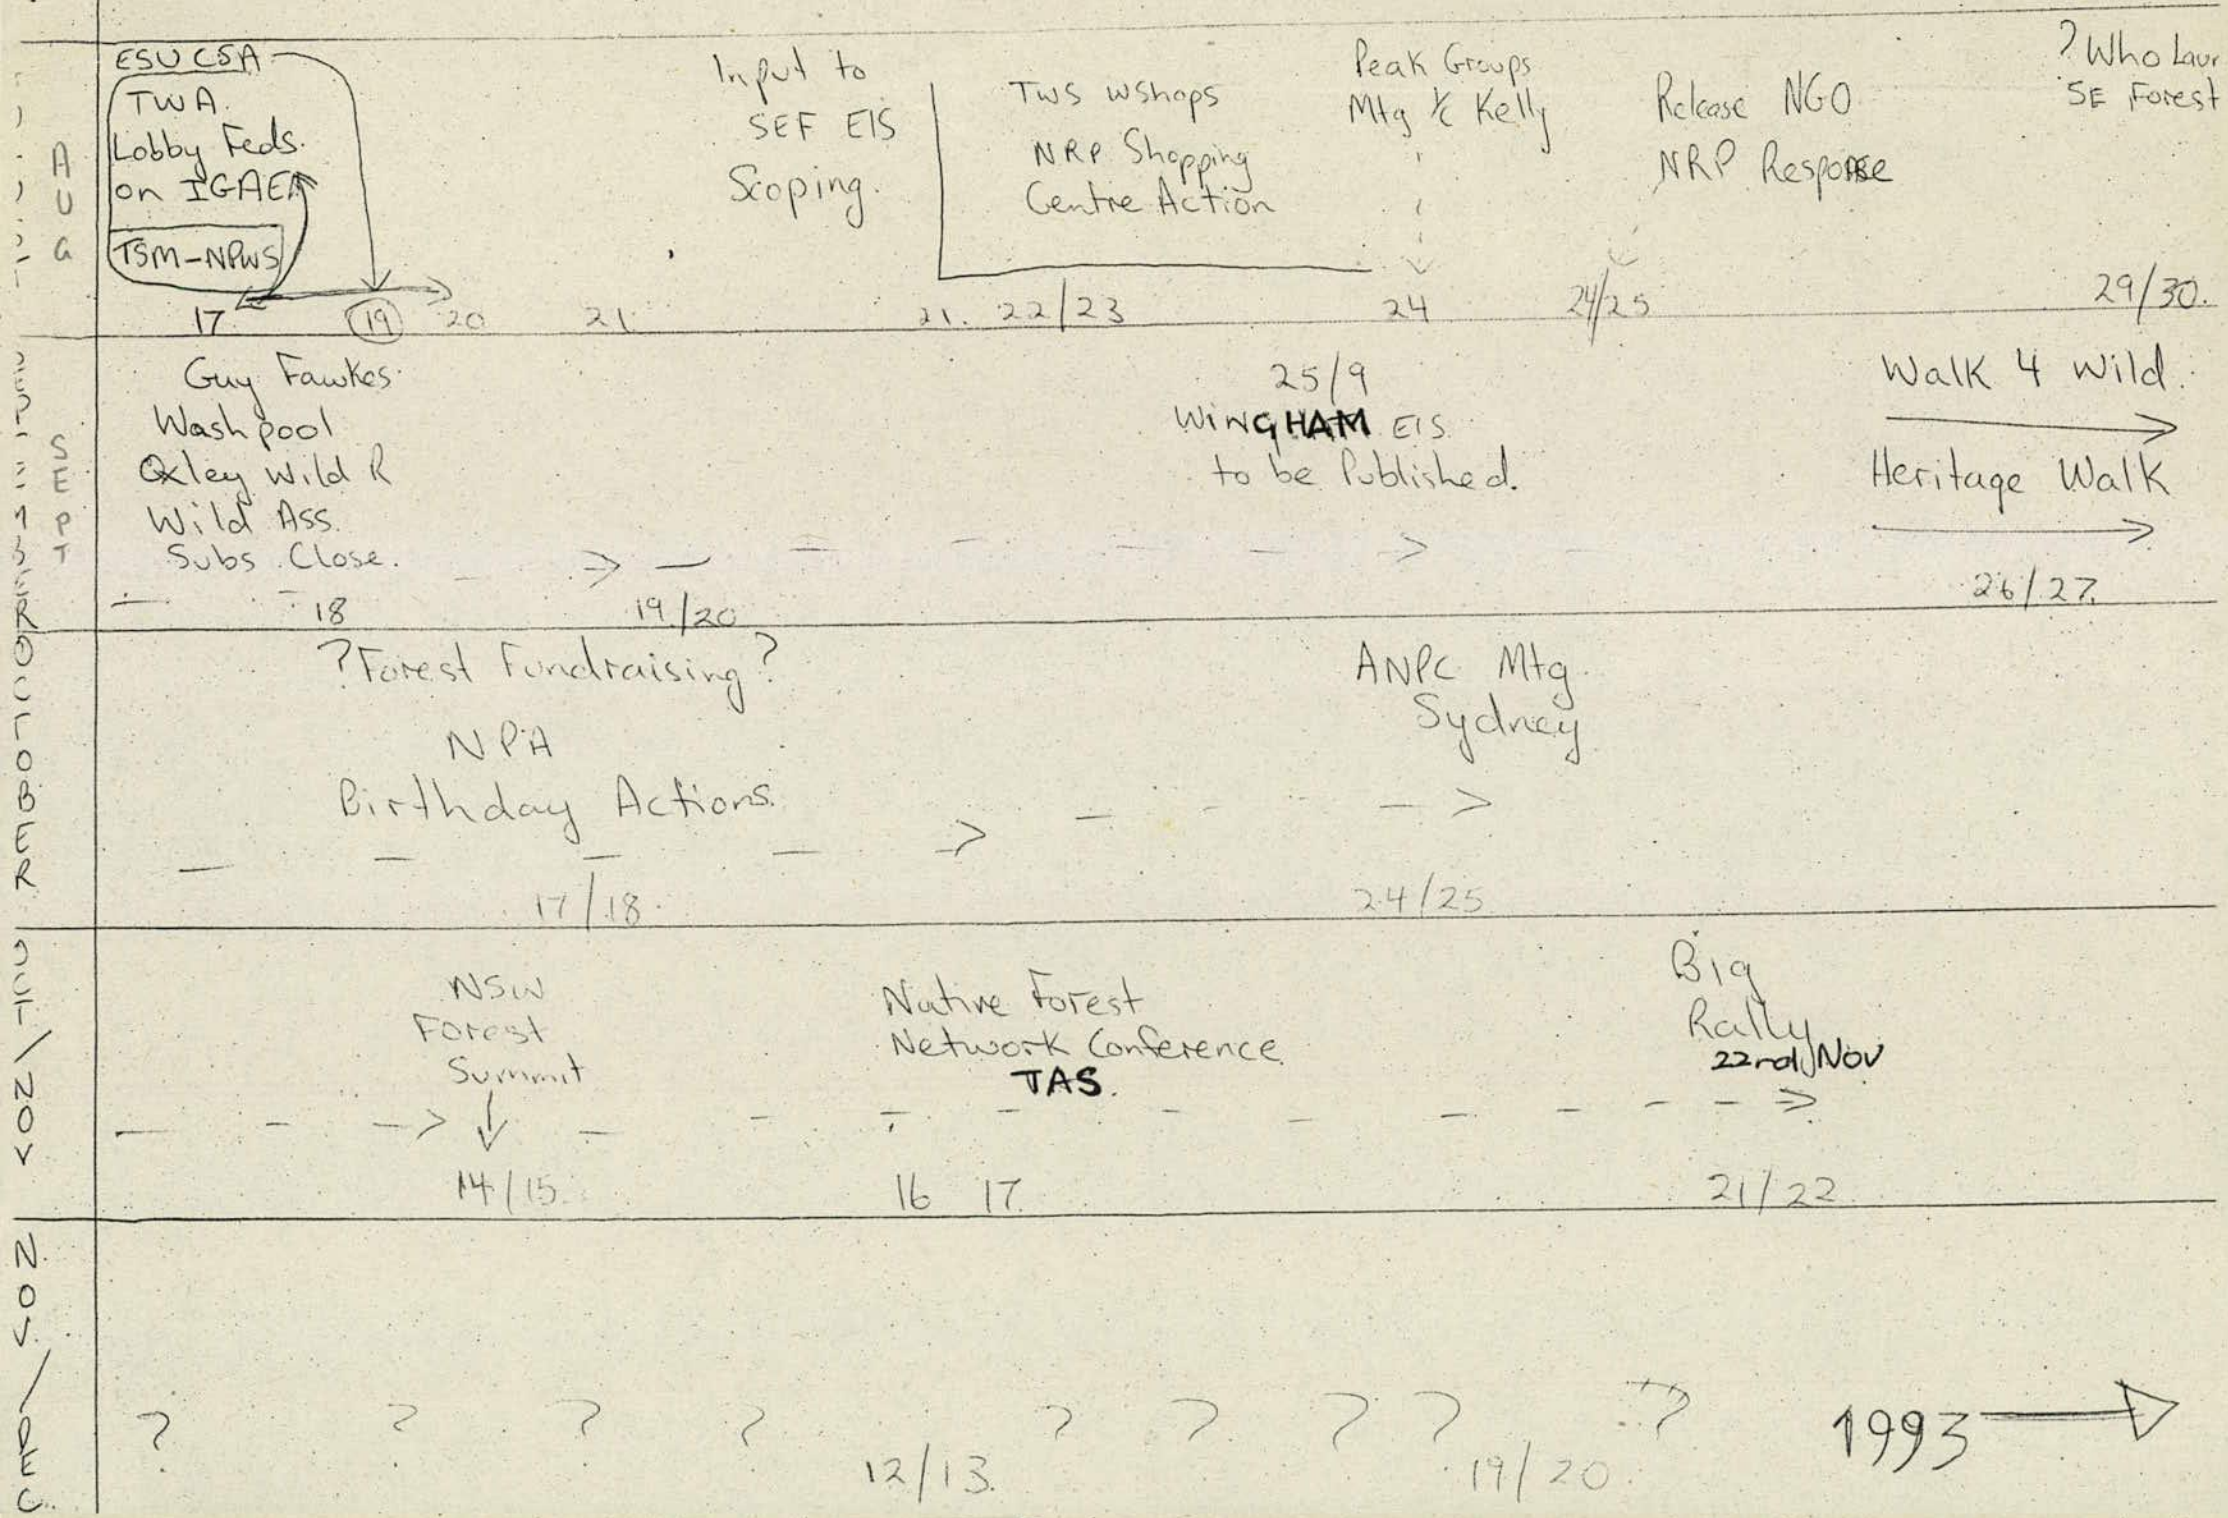 AUG
ESU CSA
TWA
Lobby Feds.
on IGAEA
TSM-NPWS
17
19
20
21
Input to
SEF EIS
Scoping.
21. 22/23
TWS WShops
NRP Shopping
Centre Action
Peak Groups
Mtg Kelly
24
Release NGO
NRP Response
24/25
? Who Laur
SE Forest
29/30.
SEPT
Guy Fawkes
Washpool
Oxley Wild R
Wild Ass.
Subs Close.
18
19/20
25/9
WINGHAM EIS
to be Published.
Walk 4 Wild.
Heritage Walk
26/27.
OCTOBER
? Forest Fundraising?
NPA
Birthday Actions.
17/18.
ANPC Mtg.
Sydney
24/25
OCT/NOV
NSW
Forest
Summit
14/15.
Native Forest
Network Conference
TAS.
16 17.
Big
Rally
22nd Nov
21/22
NOV/DEC
? ? ? ? ? ? ? ? ?
12/13.
19/20.
1993